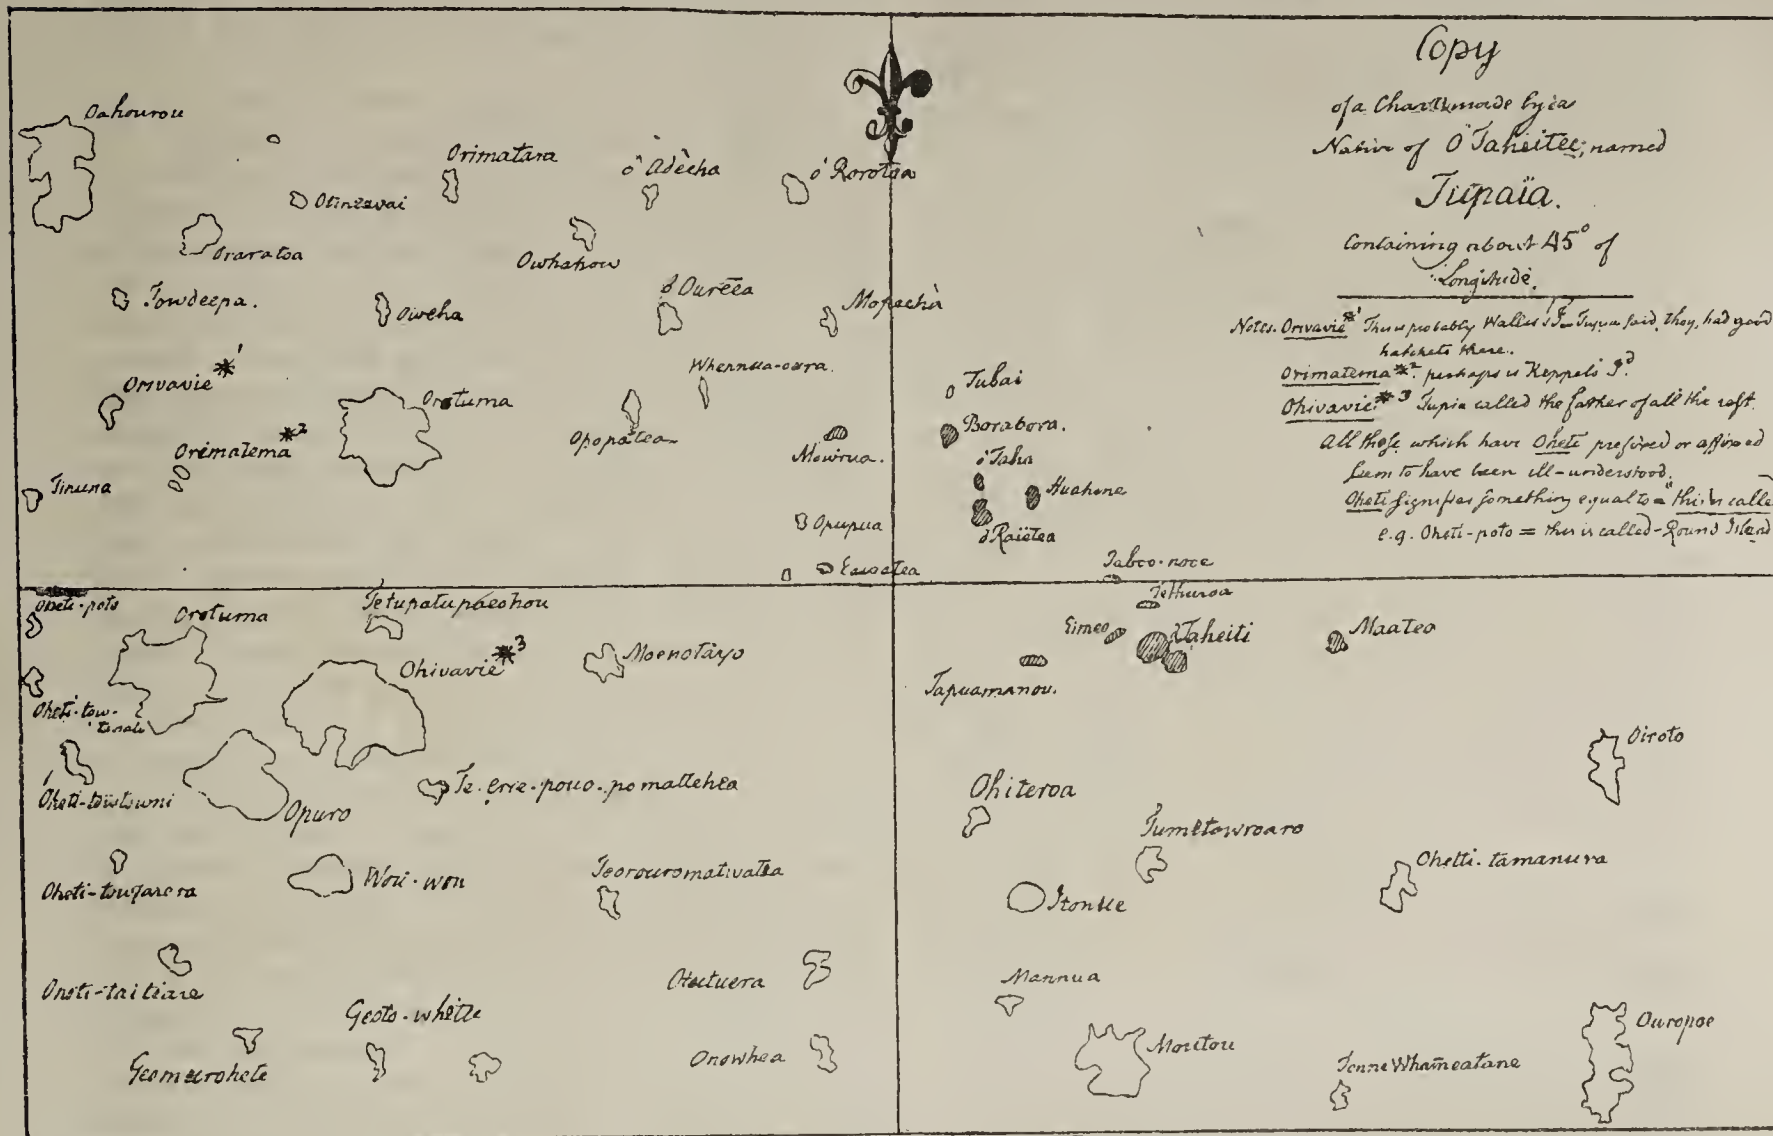 Copy
of a Chart made by a
Native of O Taheitee; named
Tupaïa.
Containing about 45° of
Longitude.
Notes. Orivavie *1 This is probably Wallis's I. Tupia said, they had good
hatchets there.
Orimatema *2. perhaps is Keppel's Id.
Ohivavie *3 Tupia called the father of all the rest.
All those which have Oheti prefixed or affixed
seem to have been ill-understood.
Oheti signifies something equal to = "this is called"
e.g. Oheti-poto = this is called Round Island
Oahourou
Orimatara
ò Adècha
ó Rorotoa
Otinzavai
Oraratoa
Owhahow
Towdeepa.
Oweha
ò Ourēēa
Mopechà
Orivavie *1
Orotuma
Whennua-oura.
Tubai
Opopatea
Borabora.
Orimatema *2
Mowrua.
o'Taha
Tinuna
Huahine
Opupua
o'Raietea
Tabco-noce
Oheti-poto
Orotuma
Tetupatupaeohou
Tethuroa
Eimeo
Taheiti
Maatea
Ohivavie *3
Moenotāyo
Tapuamanou.
Oheti-tow-
Oiroto
Oheti-towtowni
Opuro
Te-erre-pouo-pomattehea
Ohiteroa
Tumetowroaro
Ohetti-tamanuva
Wou-wou
Teorouromativatea
Itonue
Oneti-taitiare
Mannua
Geoto-whitte
Ouropoe
Onowhea
Moutou
Tenne Whāmeatane